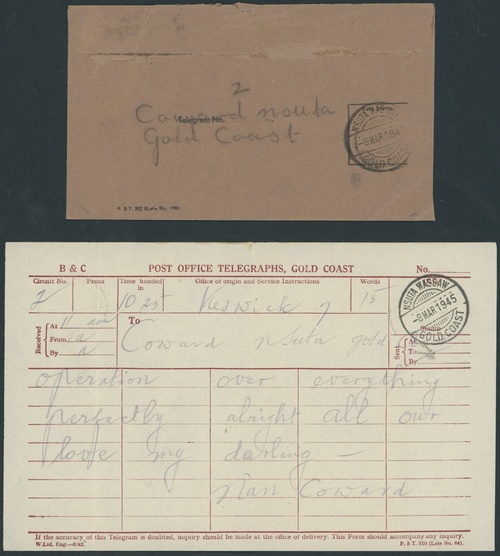 2
Coward nsuta
Telegram No.
Gold Coast
Date Stamp.
NSUTA
-8 MAR 194
GOLD COAST
P. & T. 352 (Late No.
B & C POST OFFICE TELEGRAPHS, GOLD COAST No.
Circuit No. Prefix Time handed in Office of origin and Service Instructions Words
2 10.25 Keswick 7 15
NSUTA WASSAW
-8 MAR 1945
GOLD COAST
Received At 11 am To
From
By
Coward nsuta gold
Sent At
To
By
operation over everything
perfectly alright all our
love my darling —
Nan Coward
If the accuracy of this Telegram is doubted, inquiry should be made at the office of delivery. This Form should accompany any inquiry.
W.Ltd. Eng.—6/42. P. & T. 310 (Late No. 64).